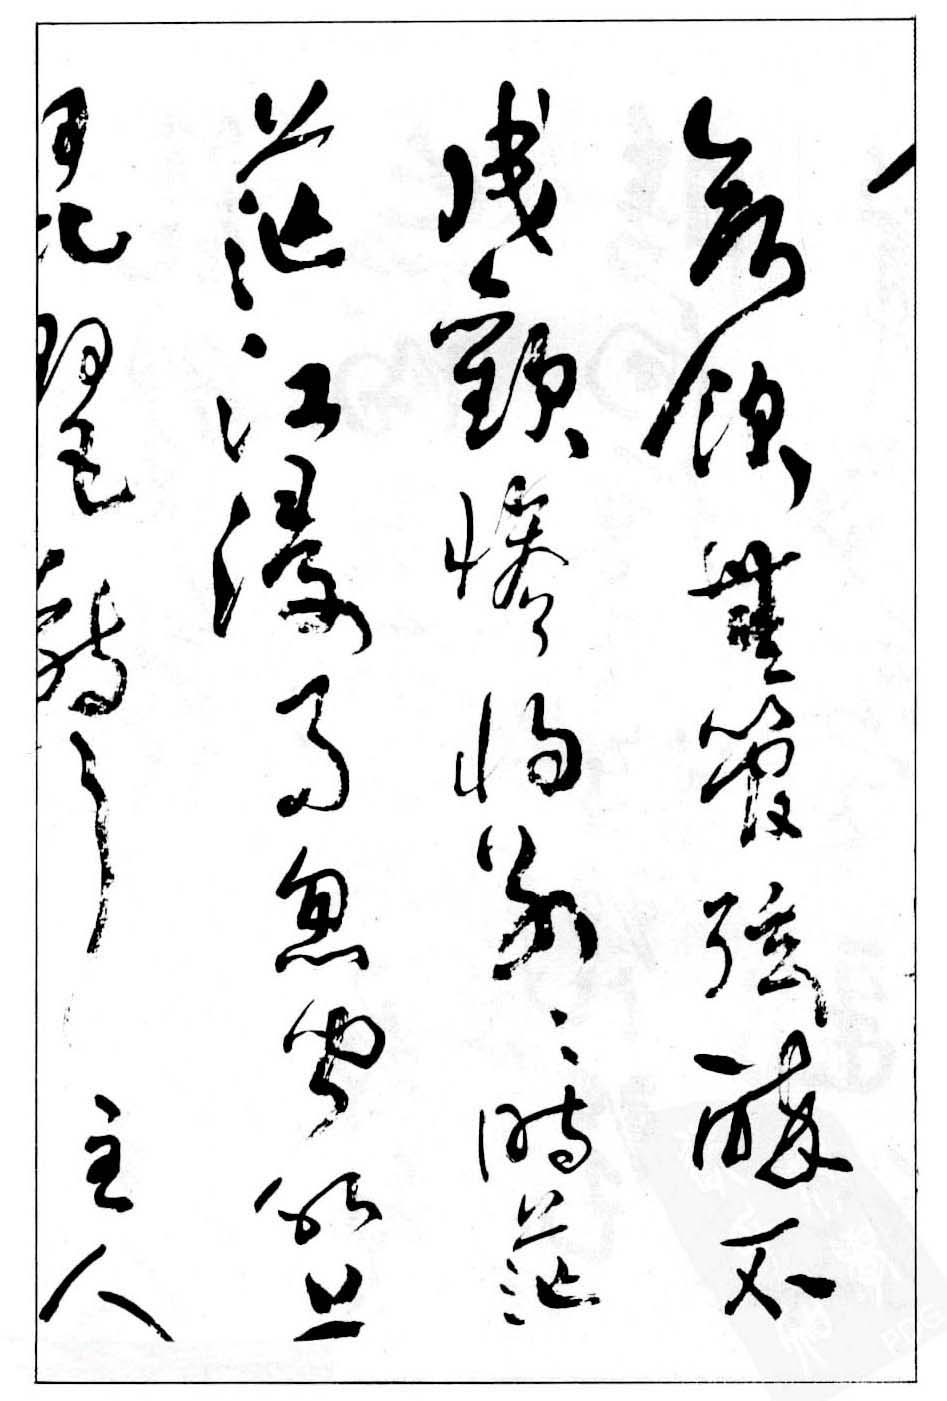 欲飲無管弦醉不
成歡慘將別々時茫
茫江浸月忽聞水上
琵琶聲主人